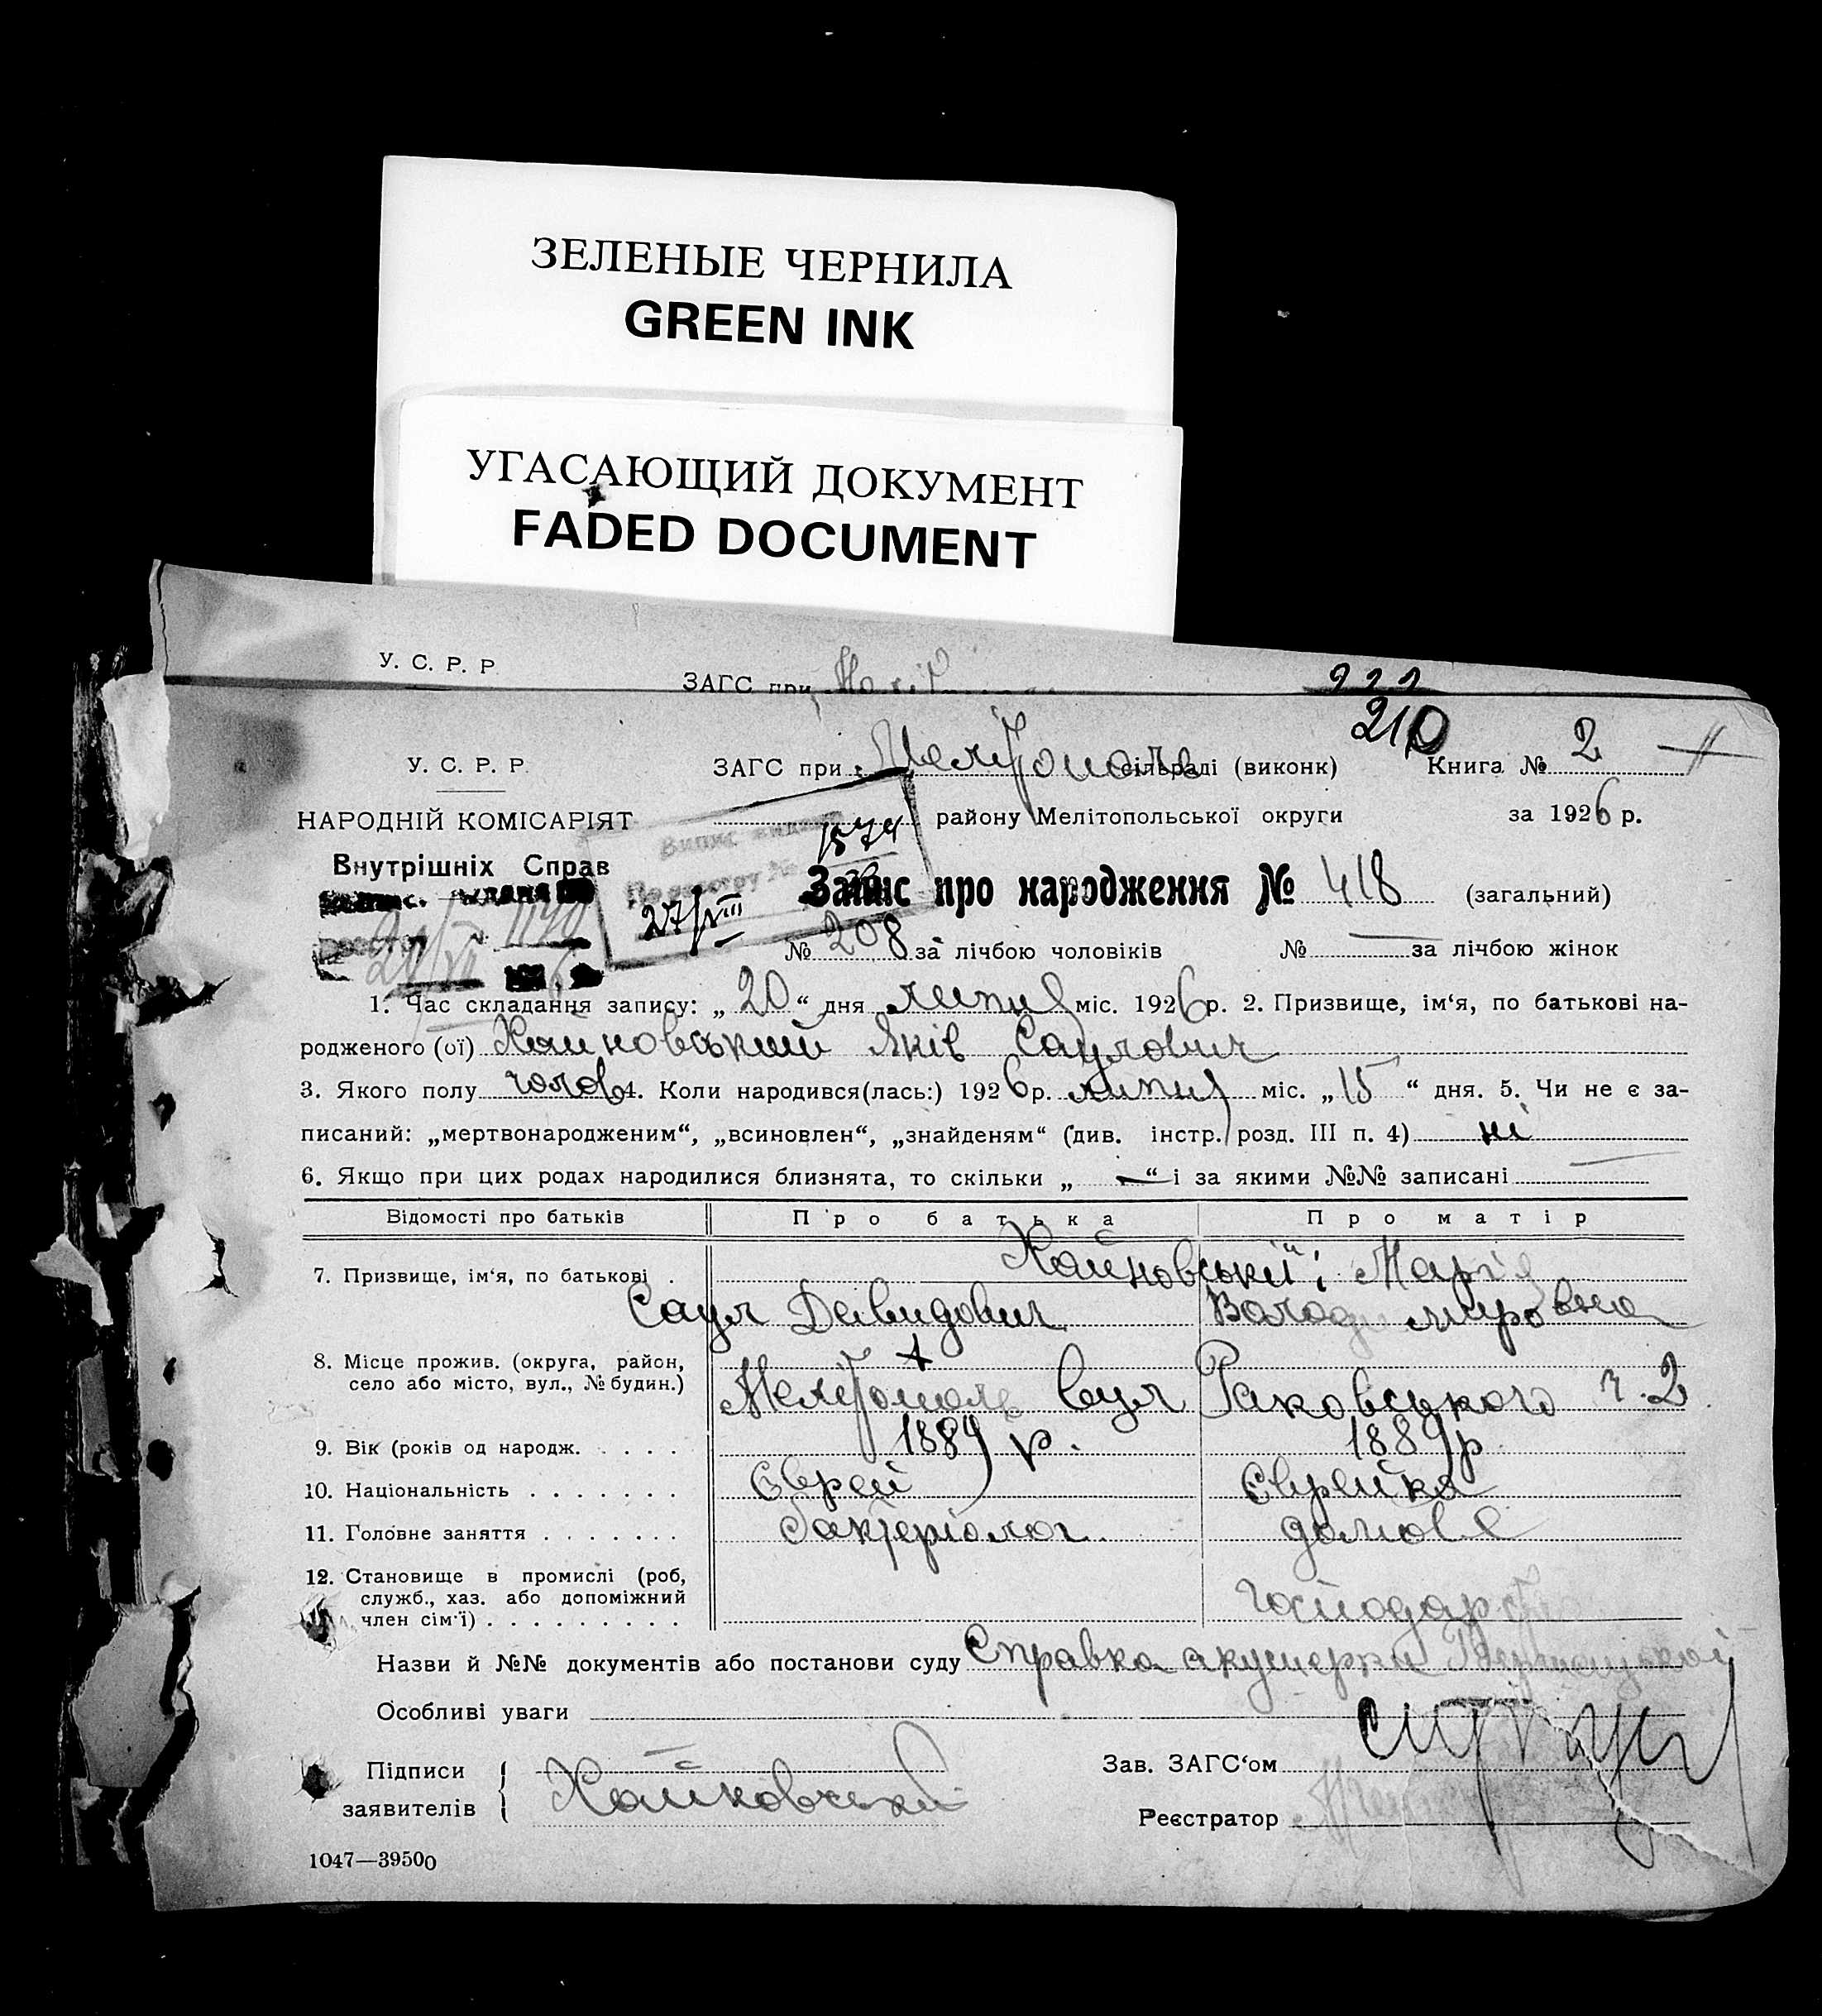 ЗЕЛЕНЫЕ ЧЕРНИЛА
GREEN INK
УГАСАЮЩИЙ ДОКУМЕНТ
FADED DOCUMENT
У. С. Р. Р.
ЗАГС при
222
210
У. С. Р. Р.
ЗАГС при Мелітополь сільраді (виконк) Книга № 2
НАРОДНІЙ КОМІСАРІЯТ
району Мелітопольської округи за 1926 р.
Внутрішніх Справ
1574
27/VIII
Запис про народження № 418 (загальний)
№ 208 за лічбою чоловіків № — за лічбою жінок
1. Час складання запису: „ 20 “ дня липня міс. 1926 р. 2. Призвище, ім‘я, по батькові на-
родженого (ої) Хайновський Яків Саулович
3. Якого полу чолов 4. Коли народився(лась:) 1926 р. липня міс. „ 15 “ дня. 5. Чи не є за-
писаний: „мертвонародженим“, „всиновлен“, „знайденям“ (див. інстр. розд. III п. 4) ні
6. Якщо при цих родах народилися близнята, то скільки „ — “ і за якими №№ записані —
Відомості про батьків Про батька Про матір
7. Призвище, ім‘я, по батькові . Хайновські: Марія
Саул Давидович Володимировна
8. Місце прожив. (округа, район,
село або місто, вул., № будин.) Мелітополь вул Раковського ч. 2
9. Вік (років од народж. . . . . 1889 р. 1889 р
10. Національність . . . . . . . Єврей Єврейка
11. Головне заняття . . . . . . . бактеріолог домове
12. Становище в промислі (роб,
служб., хаз. або допоміжний господар
член сім‘ї) . . . . . . . . .
Назви й №№ документів або постанови суду Справка акушерки
Особливі уваги
Зав. ЗАГС‘ом
Підписи
заявителів Хайновський
Реєстратор
1047—39500